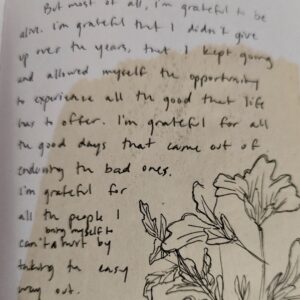 But most of all, i'm grateful to be
alive. i'm grateful that I didn't give
up over the years, that I kept going
and allowed myself the opportunity
to experience all the good that life
has to offer. I'm grateful for all
the good days that came out of
enduring the bad ones.
I'm grateful for
all the people I
bring myself to
can't hurt by
taking the easy
way out.